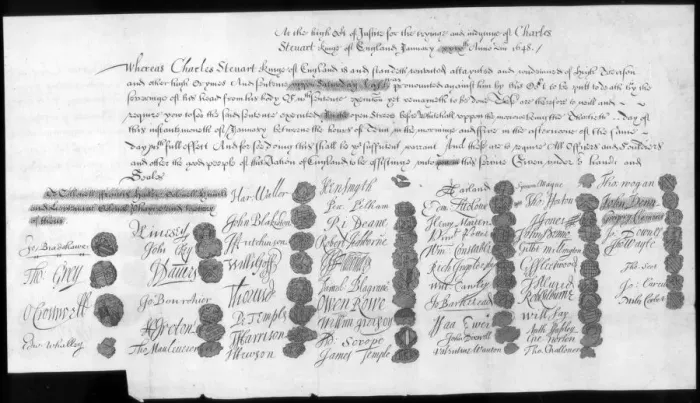 At the high Cort of Justice for the tryinge and iudginge of Charles
Steuart Kinge of England January xxixth Anno Dom 1648./
Whereas Charles Steuart Kinge of England is and standeth convicted attaynted and condemned of High Treason
and other high Crymes And sentence uppon Saturday last was pronounced against him by this Cort to be putt to death by the
severinge of his head from his body Of wch sentence execution yet remayneth to be done These are therefore to will and
require you to see the said sentence executed In the open Streete before Whitehall uppon the morrowe being the Thirtieth day of
this instant moneth of January betweene the houres of Tenn in the morninge and Five in the afternoone of the same
day wth full effect And for soe doing this shall be yor sufficient warrant And these are to require All Officers and Souldiers
and other the good people of this Nation of England to be assistinge unto you in this service Given under or hands and
Seales
To Collonell Huncks Collonell
and Lieutenant Colonell Phayre and to every
of them
Jo Bradshawe
Tho Grey
O Cromwell
Edw Whalley
M Livesey
John
J Danvers
Jo Bourchier
H Ireton
Tho Mauleverer
Har Waller
John Blakiston
J Hutchinson
Willi Goff
Tho Pride
P Temple
T Harrison
J Hewson
Hen Smyth
Per Pelham
Ri Deane
Robert Tichborne
Owen Rowe
William
Ad Scrope
James Temple
A Garland
Edm Ludlowe
Henry Marten
Vinct Potter
Wm Constable
Rich Ingoldesby
Will Cawley
Jo Barkestead
Isaa Ewer
John Dixwell
Valentine Wauton
Symon Mayne
Tho Horton
J Jones
John Moore
Gilbt Millington
G Fleetwood
J Alured
Robt Lilburne
Will Say
Anth Stapley
Gre Norton
Tho Challoner
Tho Wogan
John Venn
Gregory Clement
Jo Downes
Tho Wayte
Tho Scot
Jo Carew
Miles Corbet